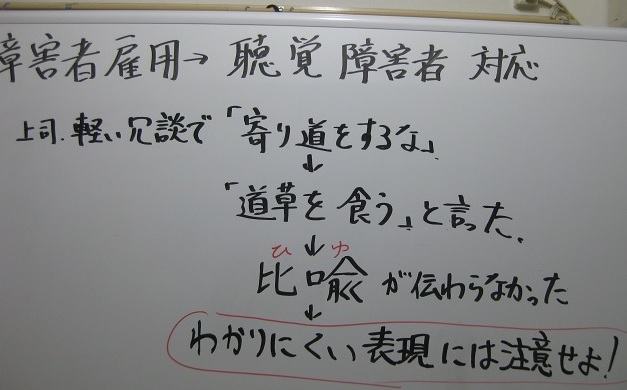 障害者雇用→聴覚障害者 対応
上司.軽い冗談で「寄り道をするな」
↓
「道草を食う」と言った.
↓
ひ ゆ
比喩が伝わらなかった
↓
わかりにくい表現には注意せよ!